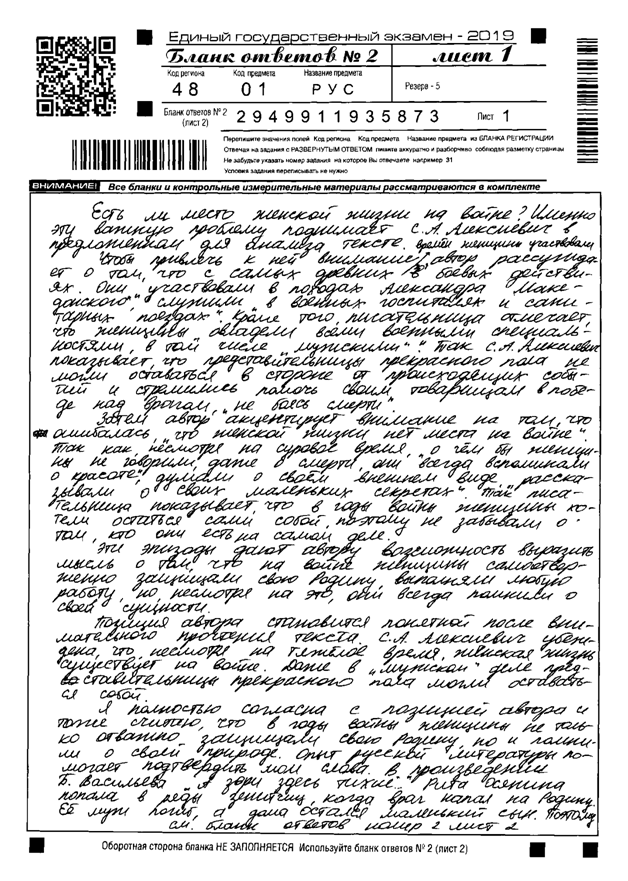 Единый государственный экзамен - 2019
Бланк ответов № 2
лист 1
Код региона Код предмета Название предмета
48 01 РУС
Резерв - 5
Бланк ответов № 2 (лист 2)
2949911935873
Лист 1
Перепишите значения полей Код региона Код предмета Название предмета из БЛАНКА РЕГИСТРАЦИИ
Отвечая на задания с РАЗВЕРНУТЫМ ОТВЕТОМ пишите аккуратно и разборчиво соблюдая разметку страницы
Не забудьте указать номер задания на которое Вы отвечаете например 31
Условия задания переписывать не нужно
ВНИМАНИЕ! Все бланки и контрольные измерительные материалы рассматриваются в комплекте
Есть ли место женской жизни на войне? Именно
эту важную проблему поднимает С.А. Алексиевич в
предложенном для анализа тексте.
времён женщины участвовали
Чтобы привлечь к ней внимание, автор рассужда-
ет о том, что с самых древних в боевых действи-
ях. Они участвовали в походах Александра Маке-
донского" служили в военных госпиталях и сани-
тарных поездах". Кроме того, писательница отмечает,
что женщины овладели всеми военными специаль-
ностями, в том числе „мужскими". Так С.А. Алексиевич
показывает, что представительницы прекрасного пола не
могли оставаться в стороне от происходящих собы-
тий и стремились помочь своим товарищам в побе-
де над врагом, „не боясь смерти".
Затем автор акцентирует внимание на том, что
ошибалась, „что женской жизни нет места на войне".
Так как, несмотря на суровое время, „о чём бы женщи-
ны не говорили, даже о смерти, они "всегда вспоминали
о красоте", думали о своём внешнем виде, расска-
зывали „о своих маленьких секретах". Так писа-
тельница показывает, что в годы войны женщины хо-
тели остаться сами собой, поэтому не забывали о
том, кто они есть на самом деле.
Эти эпизоды дают автору возможность выразить
мысль о том, что на войне женщины самоотвер-
женно защищали свою Родину, выполняли любую
работу, но, несмотря на это, они всегда помнили о
своей сущности.
Позиция автора становится понятной после вни-
мательного прочтения текста. С.А. Алексиевич убеж-
дена, что, несмотря на тяжёлое время, женская жизнь
существует на войне. Даже в „мужском" деле пред-
ставительницы прекрасного пола могли оставать-
ся собой.
Я полностью согласна с позицией автора и
тоже считаю, что в годы войны женщины не толь-
ко отважно защищали свою Родину, но и помни-
ли о своей природе. Опыт русской литературы по-
могает подтвердить мои слова. В произведении
Б. Васильева „А зори здесь тихие" Рита Осянина
попала в ряды зенитчиц, когда враг напал на Родину.
Её муж погиб, а дома остался маленький сын. Поэтому
см. бланк ответов номер 2 лист 2
Оборотная сторона бланка НЕ ЗАПОЛНЯЕТСЯ Используйте бланк ответов № 2 (лист 2)